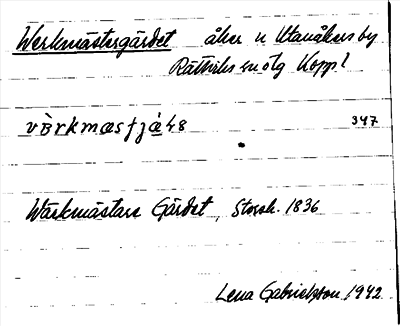 Werkmästergärdet åker n Utanåkers by
Rättviks sn ötg Kopp l
347
Wärkmästare Gärdet, Storsk. 1836
Lena Gabrielsson 1942